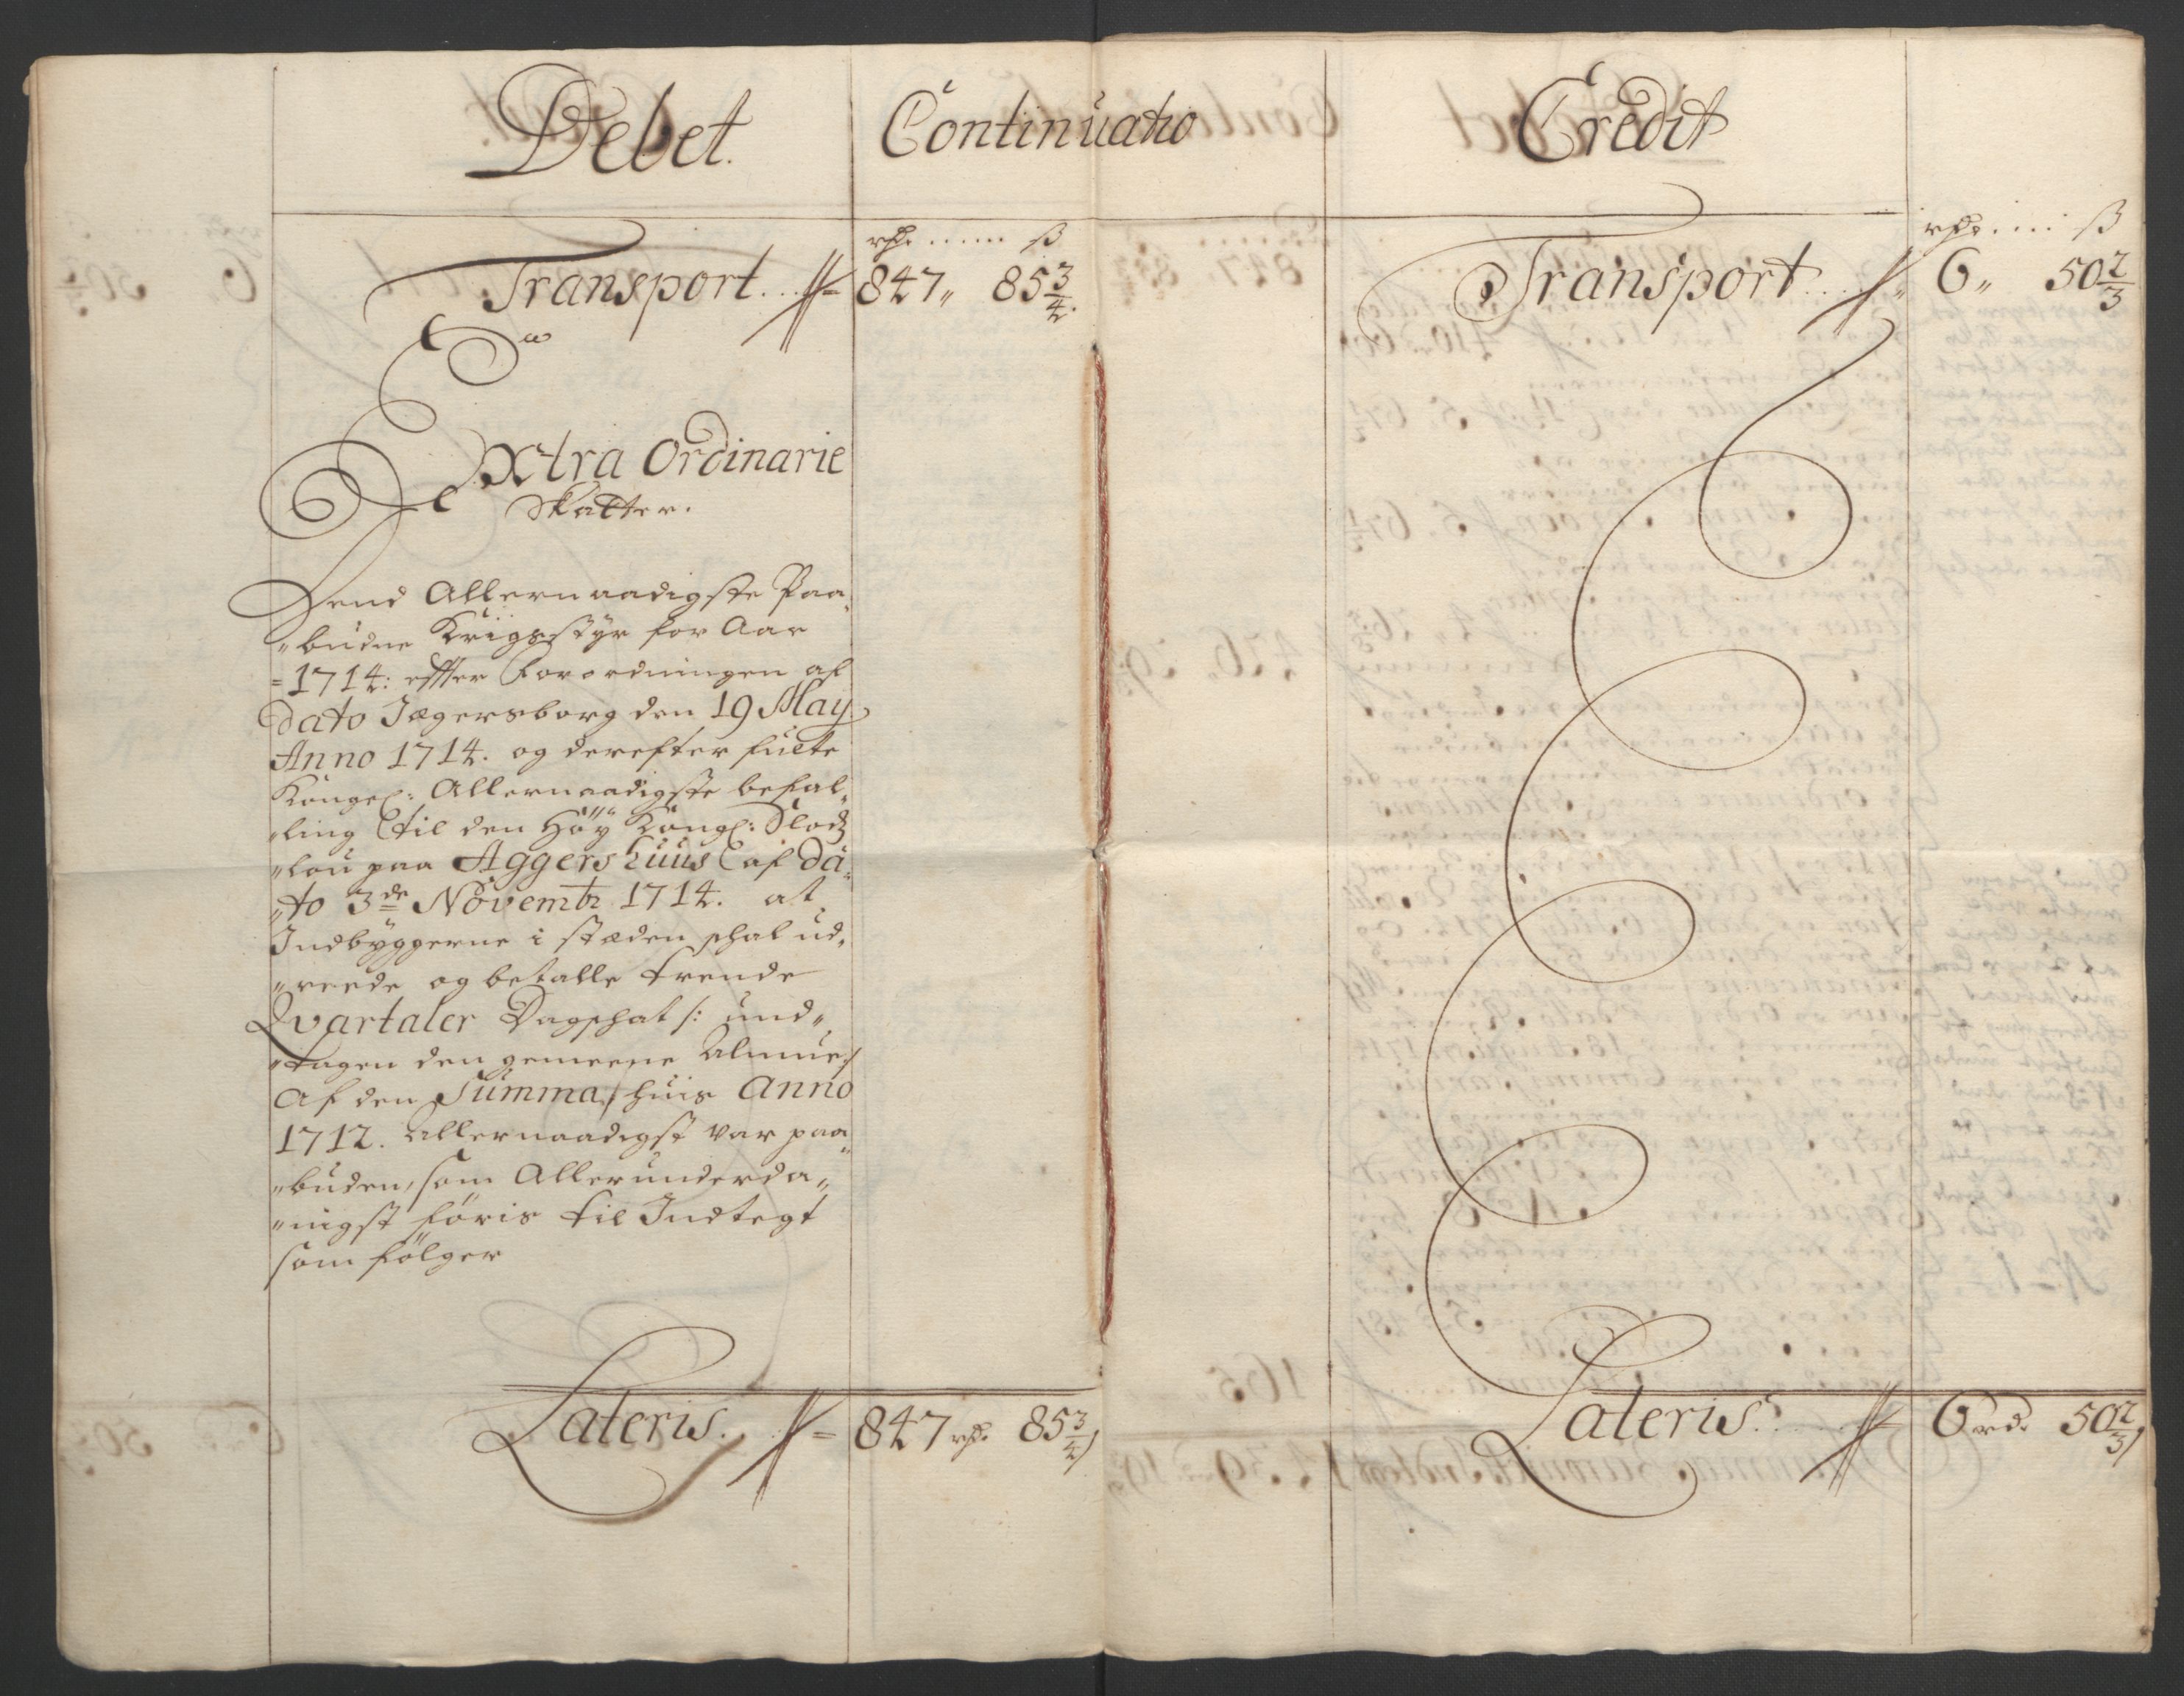 Debet.
Continuatio
Credit
rdr. ..... ß
Transport. . . 847„ 85 3/4.
Extra Ordinarie
Skatter.
Dend Allernaadigste Paa„
„budne Krigsstyr for Aar
=1714: effter Forordningen af
Dato Jægersborg den 19 May
Anno 1714. og derefter fulte
Kongel: Allernaadigste befal„
„ling til den Höÿ Kongl: Slodz
„lou paa Aggershuus af Da„
„to 3de Novembr 1714. at
Indbÿggerne i stæden schal ud„
„reede og betalle trende
Qvartaler Dagschat /: und„
„tagen den gemeene Almue:/
Af den Summa, huis Anno
1712. Allernaadigst var paa„
„buden, som Allerunderda„
„nigst föris til Indtegt
som fölger
Lateris. . = 847 rdr. 85 3/4/
rdr. .... ß
Transport . . . 6„ 50 2/3
Lateris. . . . 6 rdr. 50 2/3/